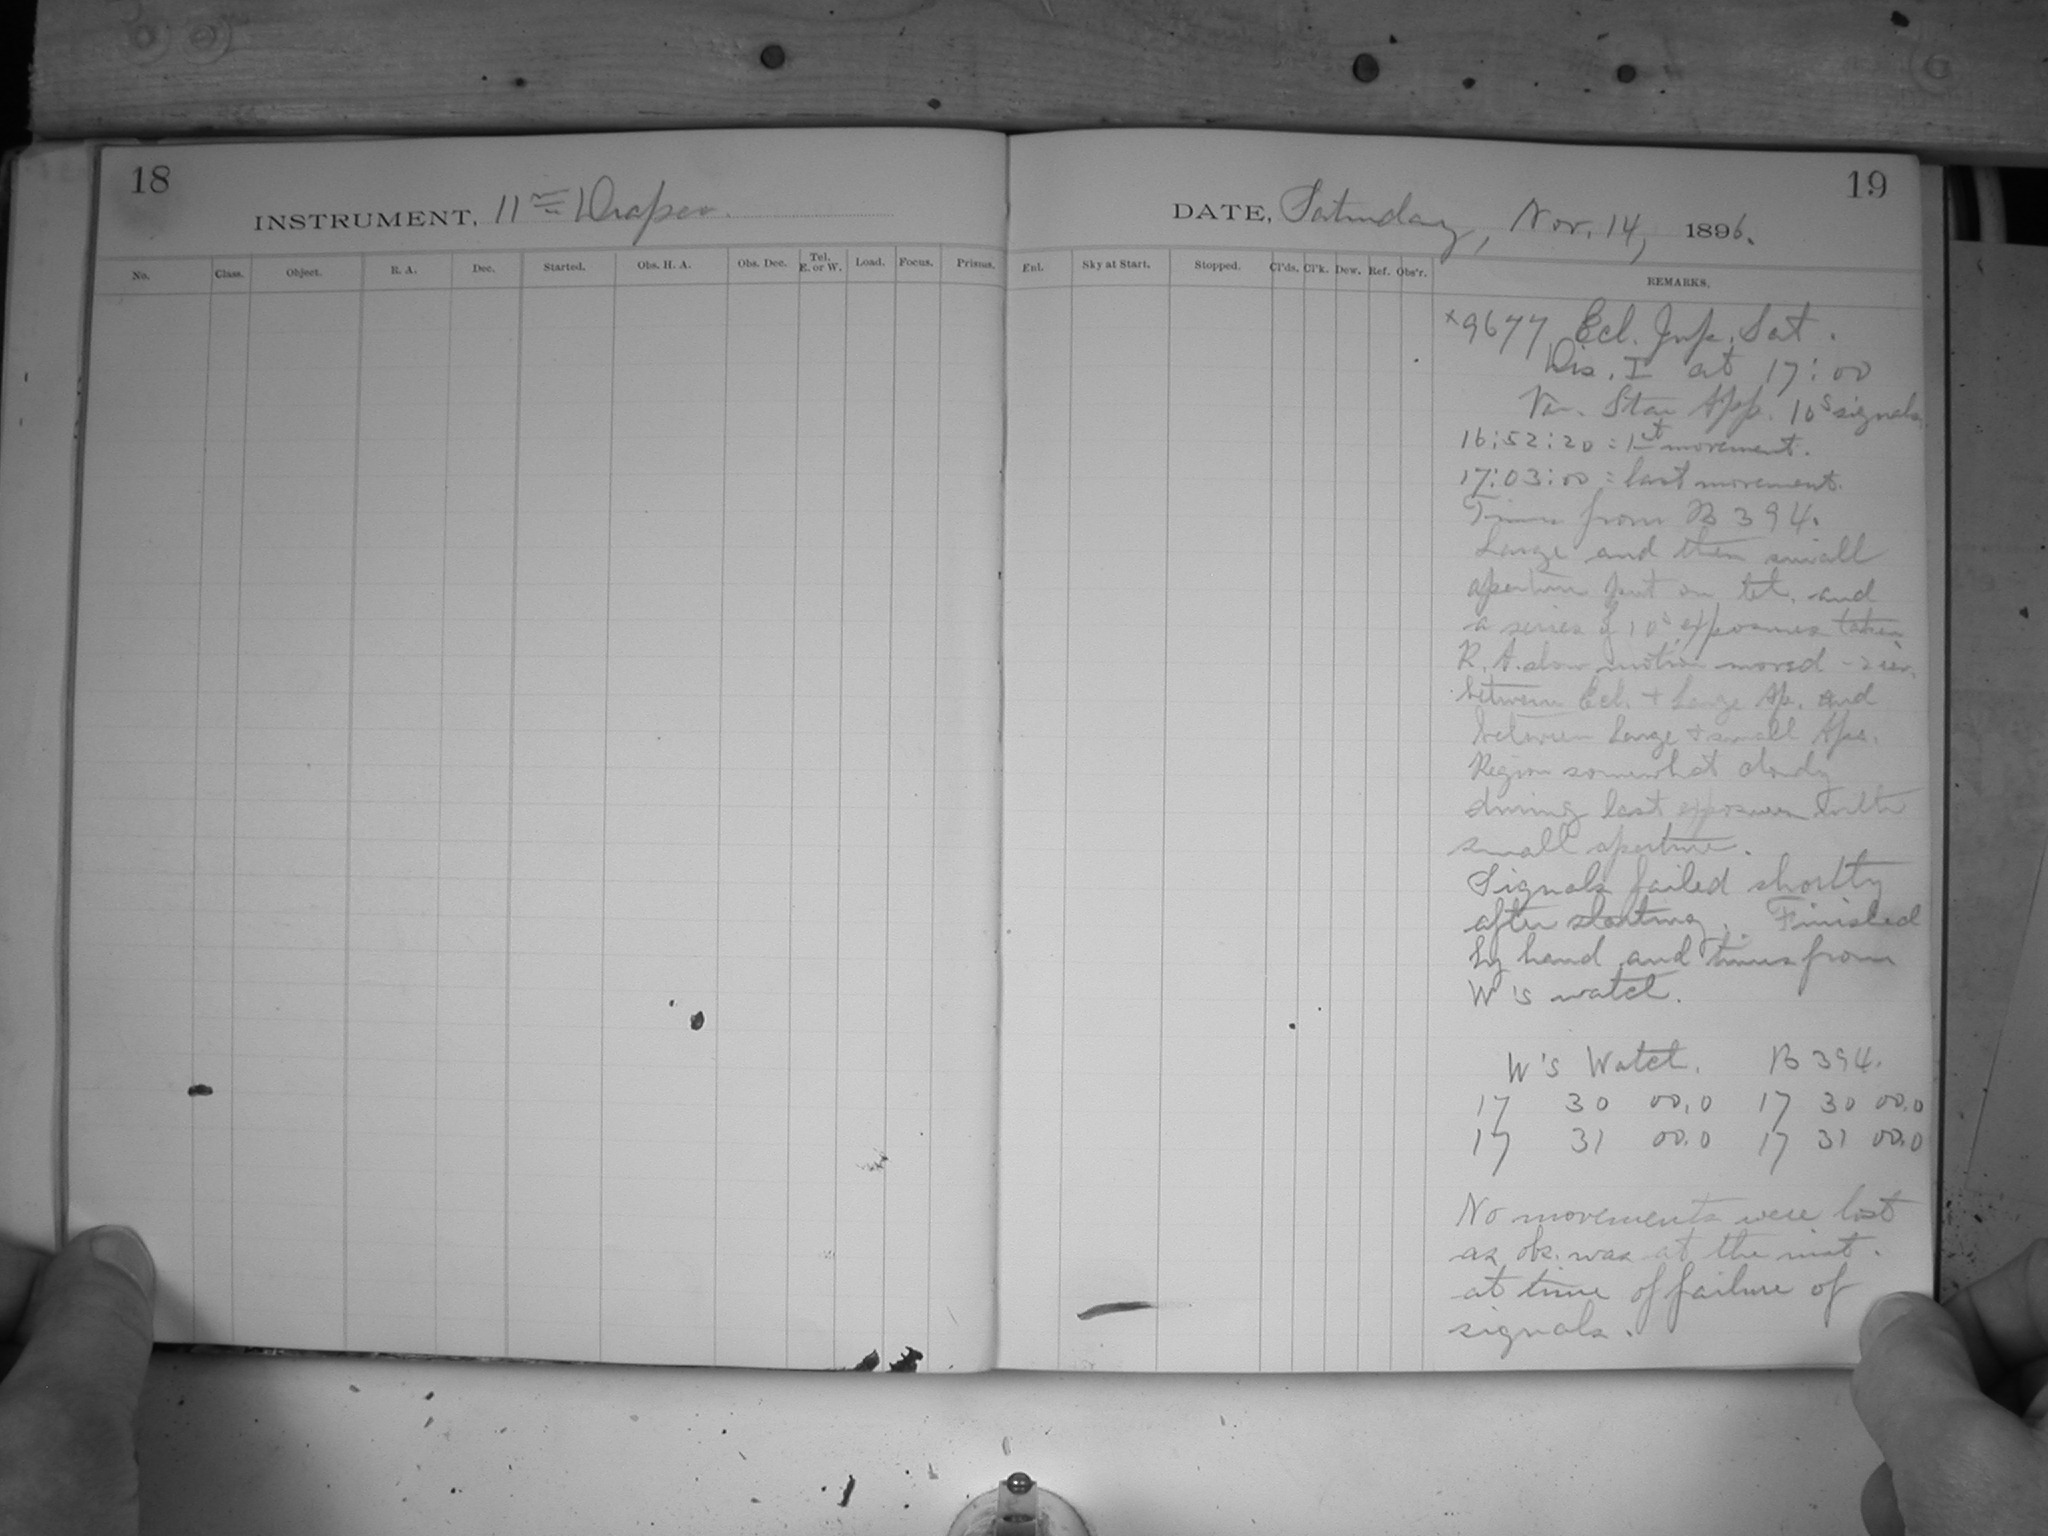 18
INSTRUMENT, 11 in Draper.
No. Class. Object. R. A. Dec. Started. Obs. H. A. Obs. Dec. Tel. E. or W. Load. Focus. Prisms.
19
DATE, Saturday, Nov. 14, 1896.
Enl. Sky at Start. Stopped. Cl'ds. Cl'k. Dew. Ref. Obs'r. REMARKS.
x9677 Ecl. Jup. Sat.
Dis. I at 17:00
Var. Star App. 10s signals.
16:52:20 = 1st movement.
17:03:00 = last movement.
Times from B 394.
Large and then small
aperture put on tel. and
a series of 10s exposures taken
R. A. slow motion moved - 2 rev.
between Ecl. + Large Ap. and
between Large + small Aps.
Region somewhat cloudy
during last exposures with
small aperture.
Signals failed shortly
after starting. Finished
by hand and times from
W's watch.
W's Watch. B 394.
17 30 00.0 17 30 00.0
17 31 00.0 17 31 00.0
No movements were lost
as obs. was at the inst.
at time of failure of
signals.